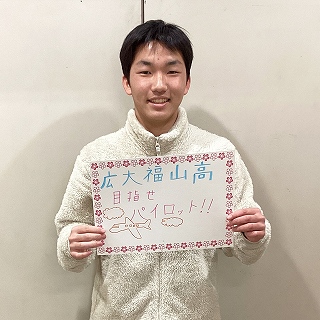 広大福山高
目指せ
パイロット!!